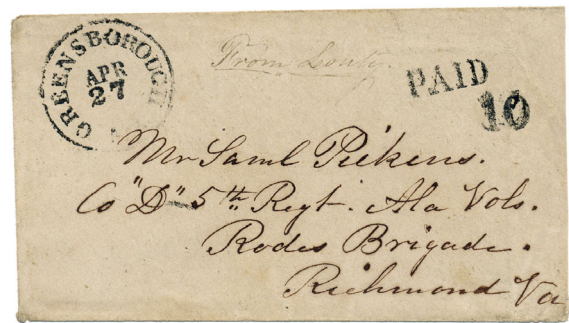 GREENSBOROUGH
APR
27
From Louty.
PAID
10
Mr Saml Pickens.
Co "D" 5th Regt. Ala Vols.
Rodes Brigade.
Richmond Va